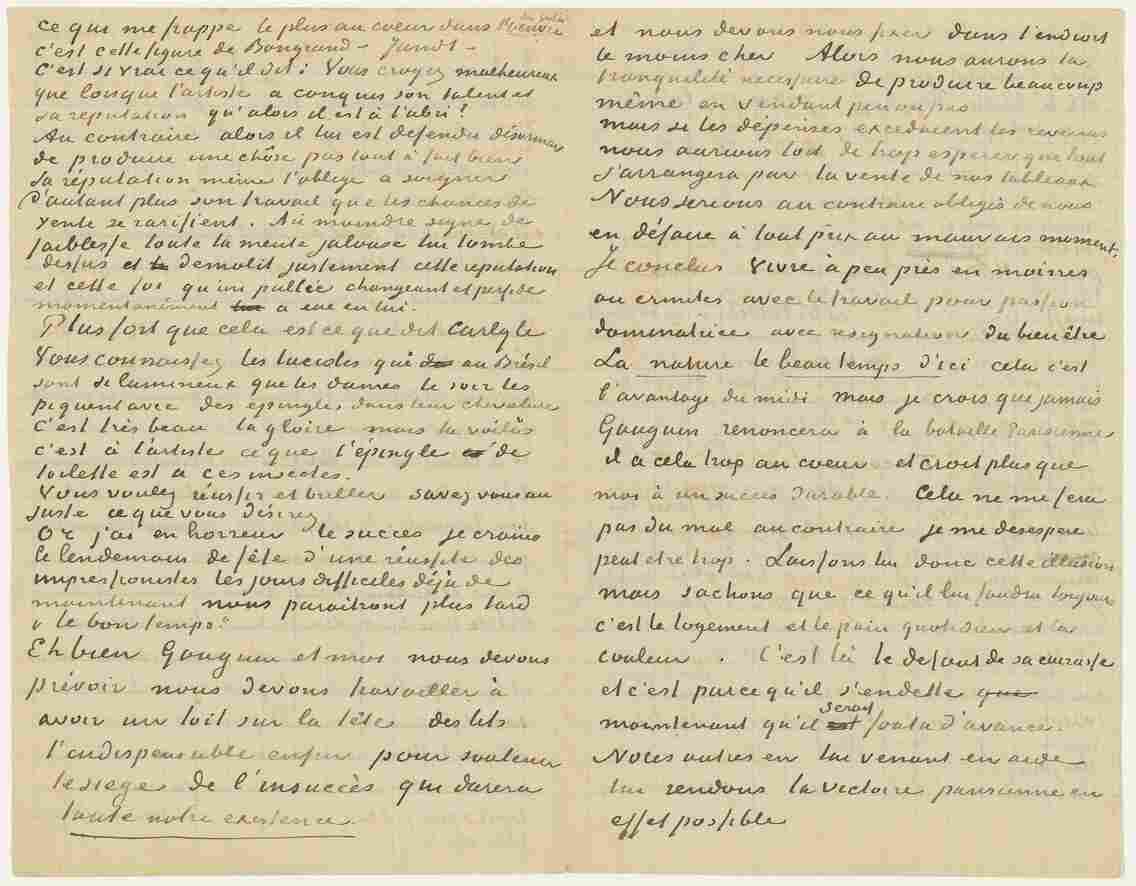 ce qui me frappe le plus au coeur dans l'oeuvre de Zola
c'est cette figure de Bongrand – Jundt –
C'est si vrai ce qu'il dit: Vous croyez malheureux
que lorsque l'artiste a conquis son talent et
sa reputation qu'alors il est à l'abri!
Au contraire alors il lui est defendu désormais
de produire une chôse pas tout à fait bien
sa réputation même l'oblige a soigner
d'autant plus son travail que les chances de
vente se rarifient. Au moindre signe de
faiblesse toute la meute jalouse lui tombe
dessus et demolit justement cette reputation
et cette foi qu'un public changeant et perfide
momentanément a eue en lui.
Plus fort que cela est ce que dit Carlyle
Vous connaissez les lucioles qui au Brésil
sont si lumineux que les dames le soir les
piquent avec des épingles dans leur chevelure
c'est très beau la gloire mais la voilà
c'est à l'artiste ce que l'épingle de
toilette est a ces insectes.
Vous voulez réussir et briller savez vous au
juste ce que vous désirez
Or j'ai en horreur le succès je crains
le lendemain de fête d'une réussite des
impressionistes les jours difficiles déjà de
maintenant nous paraitront plus tard
"le bon temps".
Eh bien Gauguin et moi nous devons
prévoir nous devons travailler à
avoir un toit sur la tête des lits
l'indispensable enfin pour soutenir
le siege de l'insuccès qui durera
toute notre existence.
et nous devons nous fixer dans l'endroit
le moins cher Alors nous aurons la
tranquilité necessaire de produire beaucoup
même en vendant peu ou pas
mais si les dépenses excedaient les revenus
nous aurions tort de trop esperer que tout
s'arrangera par la vente de nos tableaux
Nous serions au contraire obligés de nous
en défaire à tout prix au mauvais moment.
Je conclus vivre à peu près en moines
ou ermites avec le travail pour passion
dominatrice avec resignation du bienêtre
La nature le beau temps d'ici cela c'est
l'avantage du midi mais je crois que jamais
Gauguin renoncera à la bataille Parisienne
il a cela trop au coeur et croit plus que
moi à un succès durable. Cela ne me fera
pas du mal au contraire je me desespere
peut etre trop. Laissons lui donc cette illusion
mais sachons que ce qu'il lui faudra toujours
c'est le logement et le pain quotidien et la
couleur. C'est là le defaut de sa cuirasse
et c'est parce qu'il s'endette que
maintenant qu'il serait foutu d'avance.
Nous autres en lui venant en aide
lui rendons la victoire parisienne en
effet possible